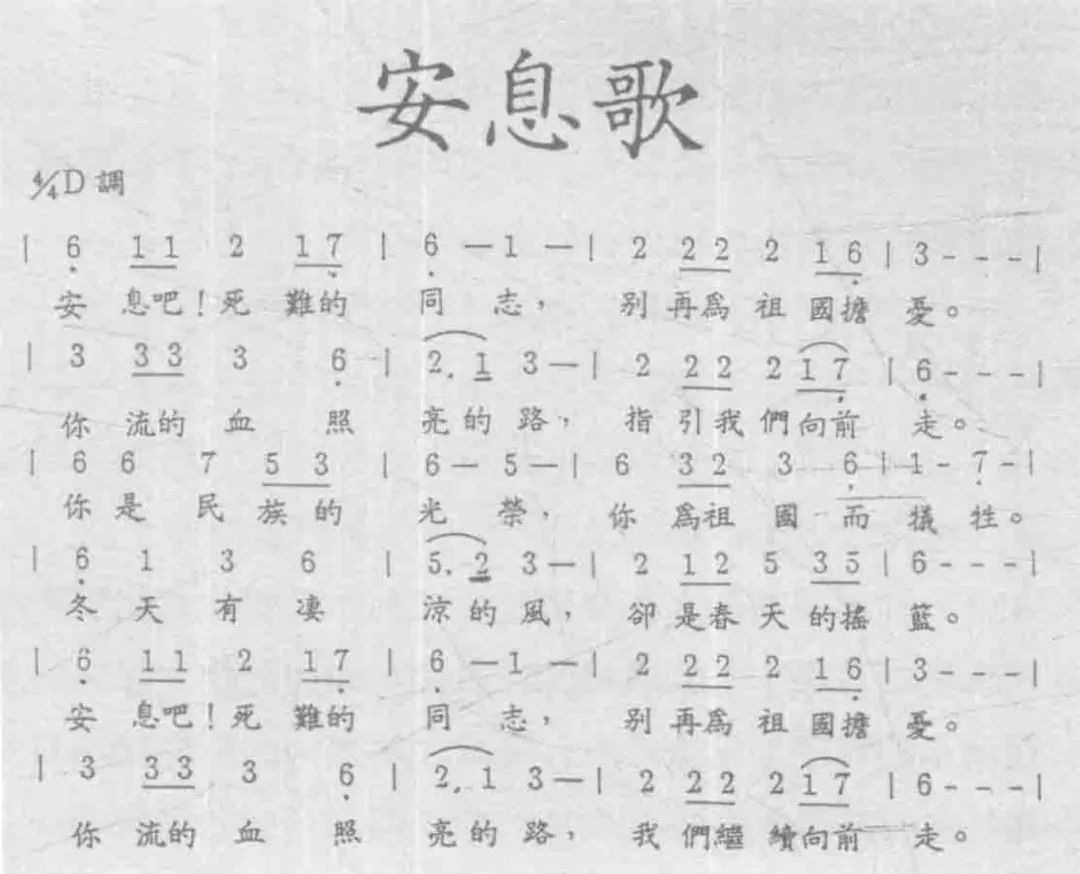 安息歌
4/4 D 調
| 6̣ 1 1 2 1 7̣ | 6̣ — 1 — | 2 2 2 2 1 6̣ | 3 - - - |
安 息吧！死 難的 同 志， 別 再爲 祖 國擔 憂。
| 3 3 3 3 6̣ | 2. 1 3 — | 2 2 2 2 1 7̣ | 6̣ - - - |
你 流的 血 照 亮的 路， 指 引我 們向前 走。
| 6 6 7 5 3 | 6 — 5 — | 6 3 2 3 6̣ | 1 - 7̣ - |
你 是 民 族 的 光 榮， 你 爲祖 國 而 犠 牲。
| 6̣ 1 3 6 | 5. 2 3 — | 2 1 2 5 3 5 | 6 - - - |
冬 天 有 凄 涼的 風， 卻 是春 天 的搖 籃。
| 6̣ 1 1 2 1 7̣ | 6̣ — 1 — | 2 2 2 2 1 6̣ | 3 - - - |
安 息吧！死 難的 同 志， 別 再爲 祖 國擔 憂。
| 3 3 3 3 6̣ | 2. 1 3 — | 2 2 2 2 1 7 | 6 - - - |
你 流的 血 照 亮的 路， 我 們繼 續向前 走。